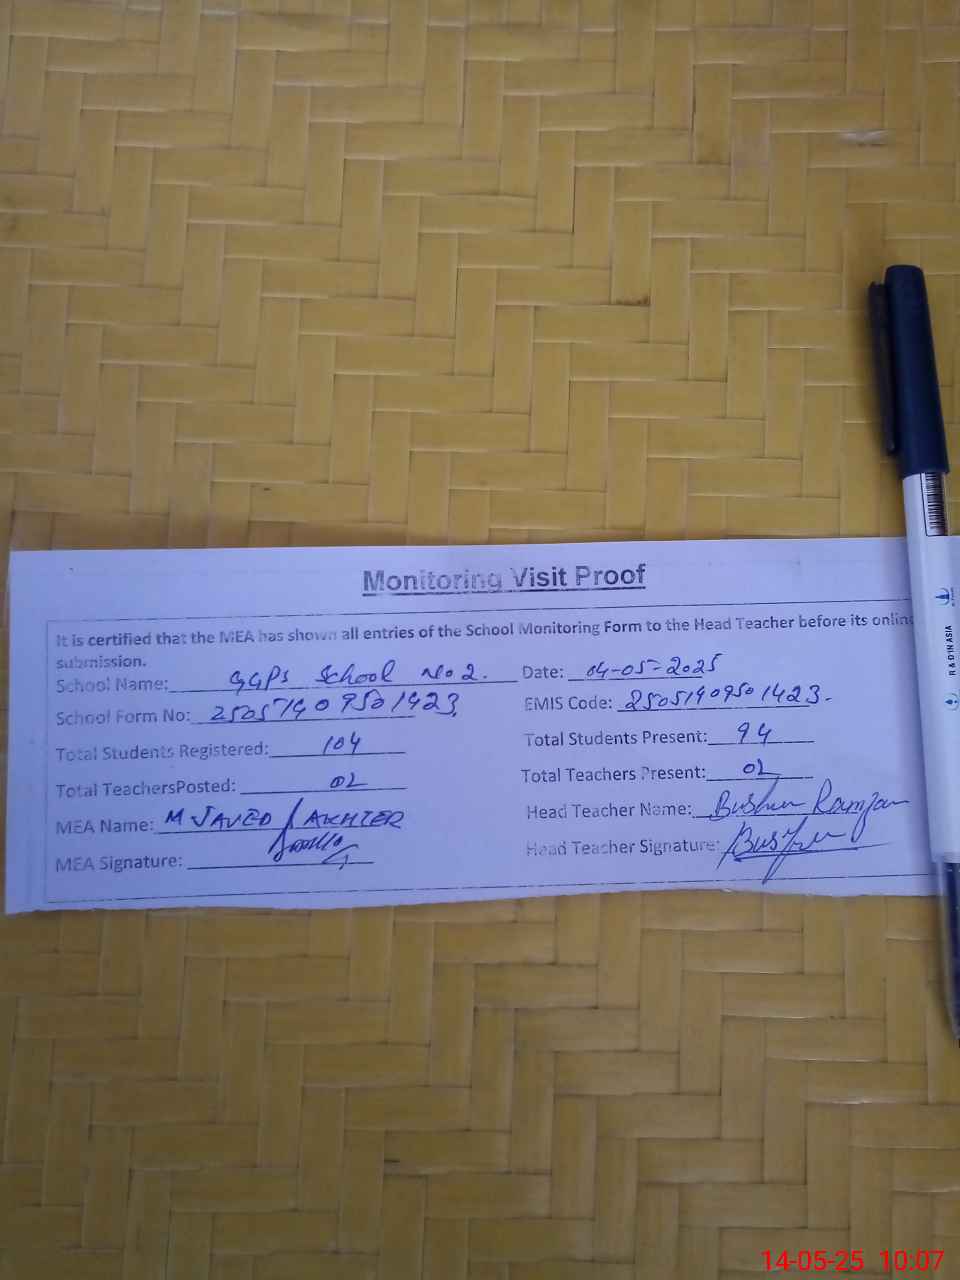 Monitoring Visit Proof
It is certified that the MEA has shown all entries of the School Monitoring Form to the Head Teacher before its online
submission.
School Name: GGPS School No 2. Date: 04-05-2025
School Form No: 25051909501423 EMIS Code: 25051909501423.
Total Students Registered: 104 Total Students Present: 94
Total TeachersPosted: 02 Total Teachers Present: 02
MEA Name: M JAVED AKHTER Head Teacher Name: Bushra Ramzan
MEA Signature: Head Teacher Signature: Bushra
R & D IN ASIA
14-05-25 10:07